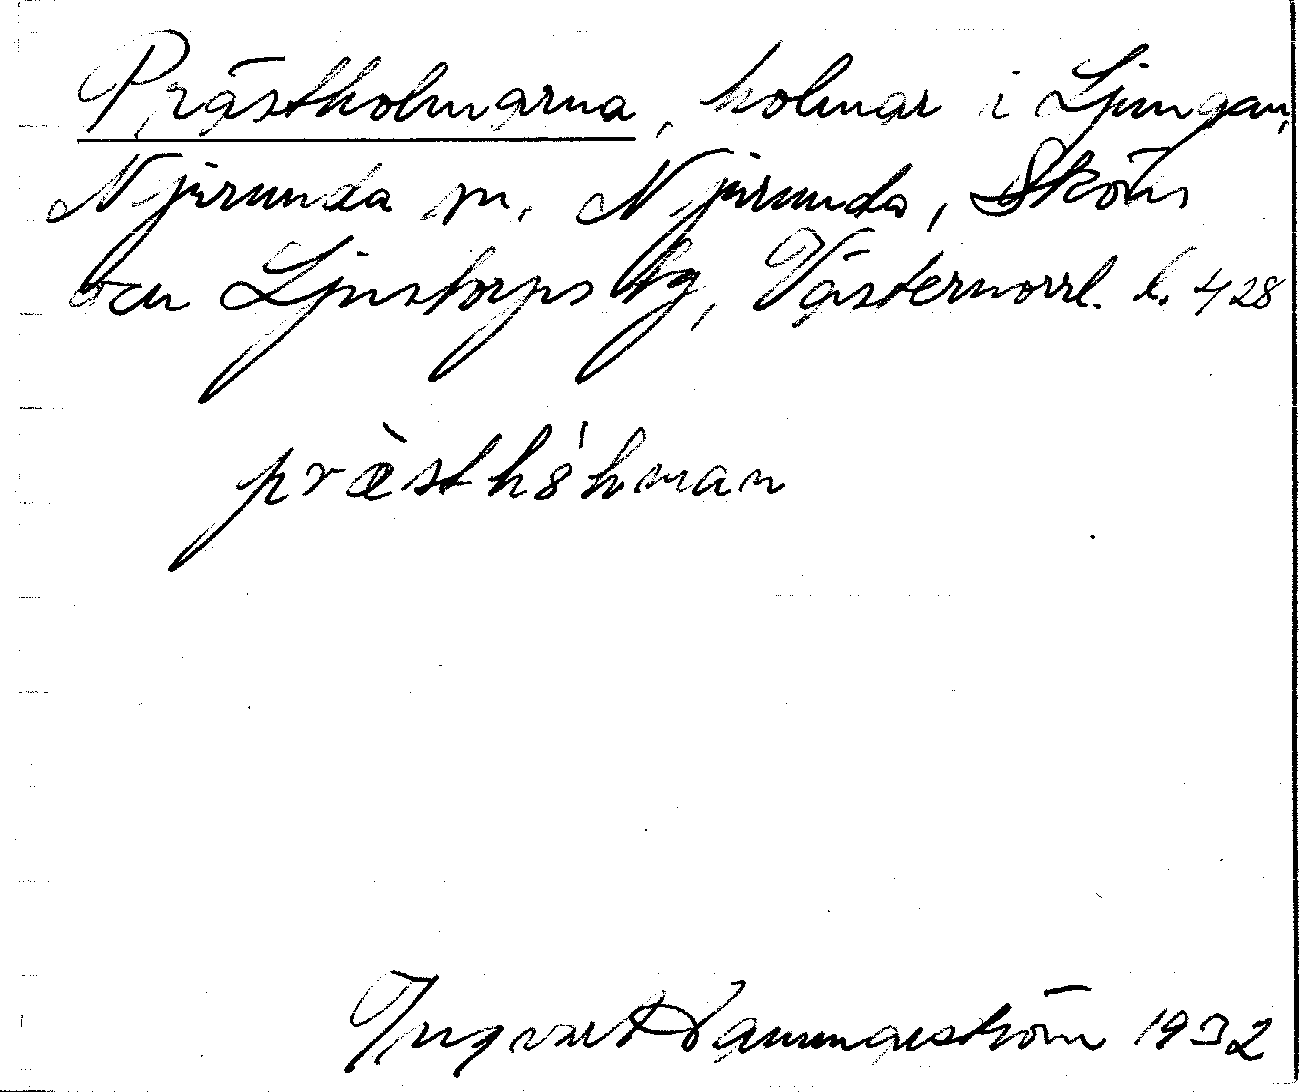 Prästholmarna, holmar i Ljungan,
Njurunda sn. Njurunda, Sköns
och Ljustorps tg, Västernorrl. l. 428
præ̀sthó̤hman
Ingvar 1932